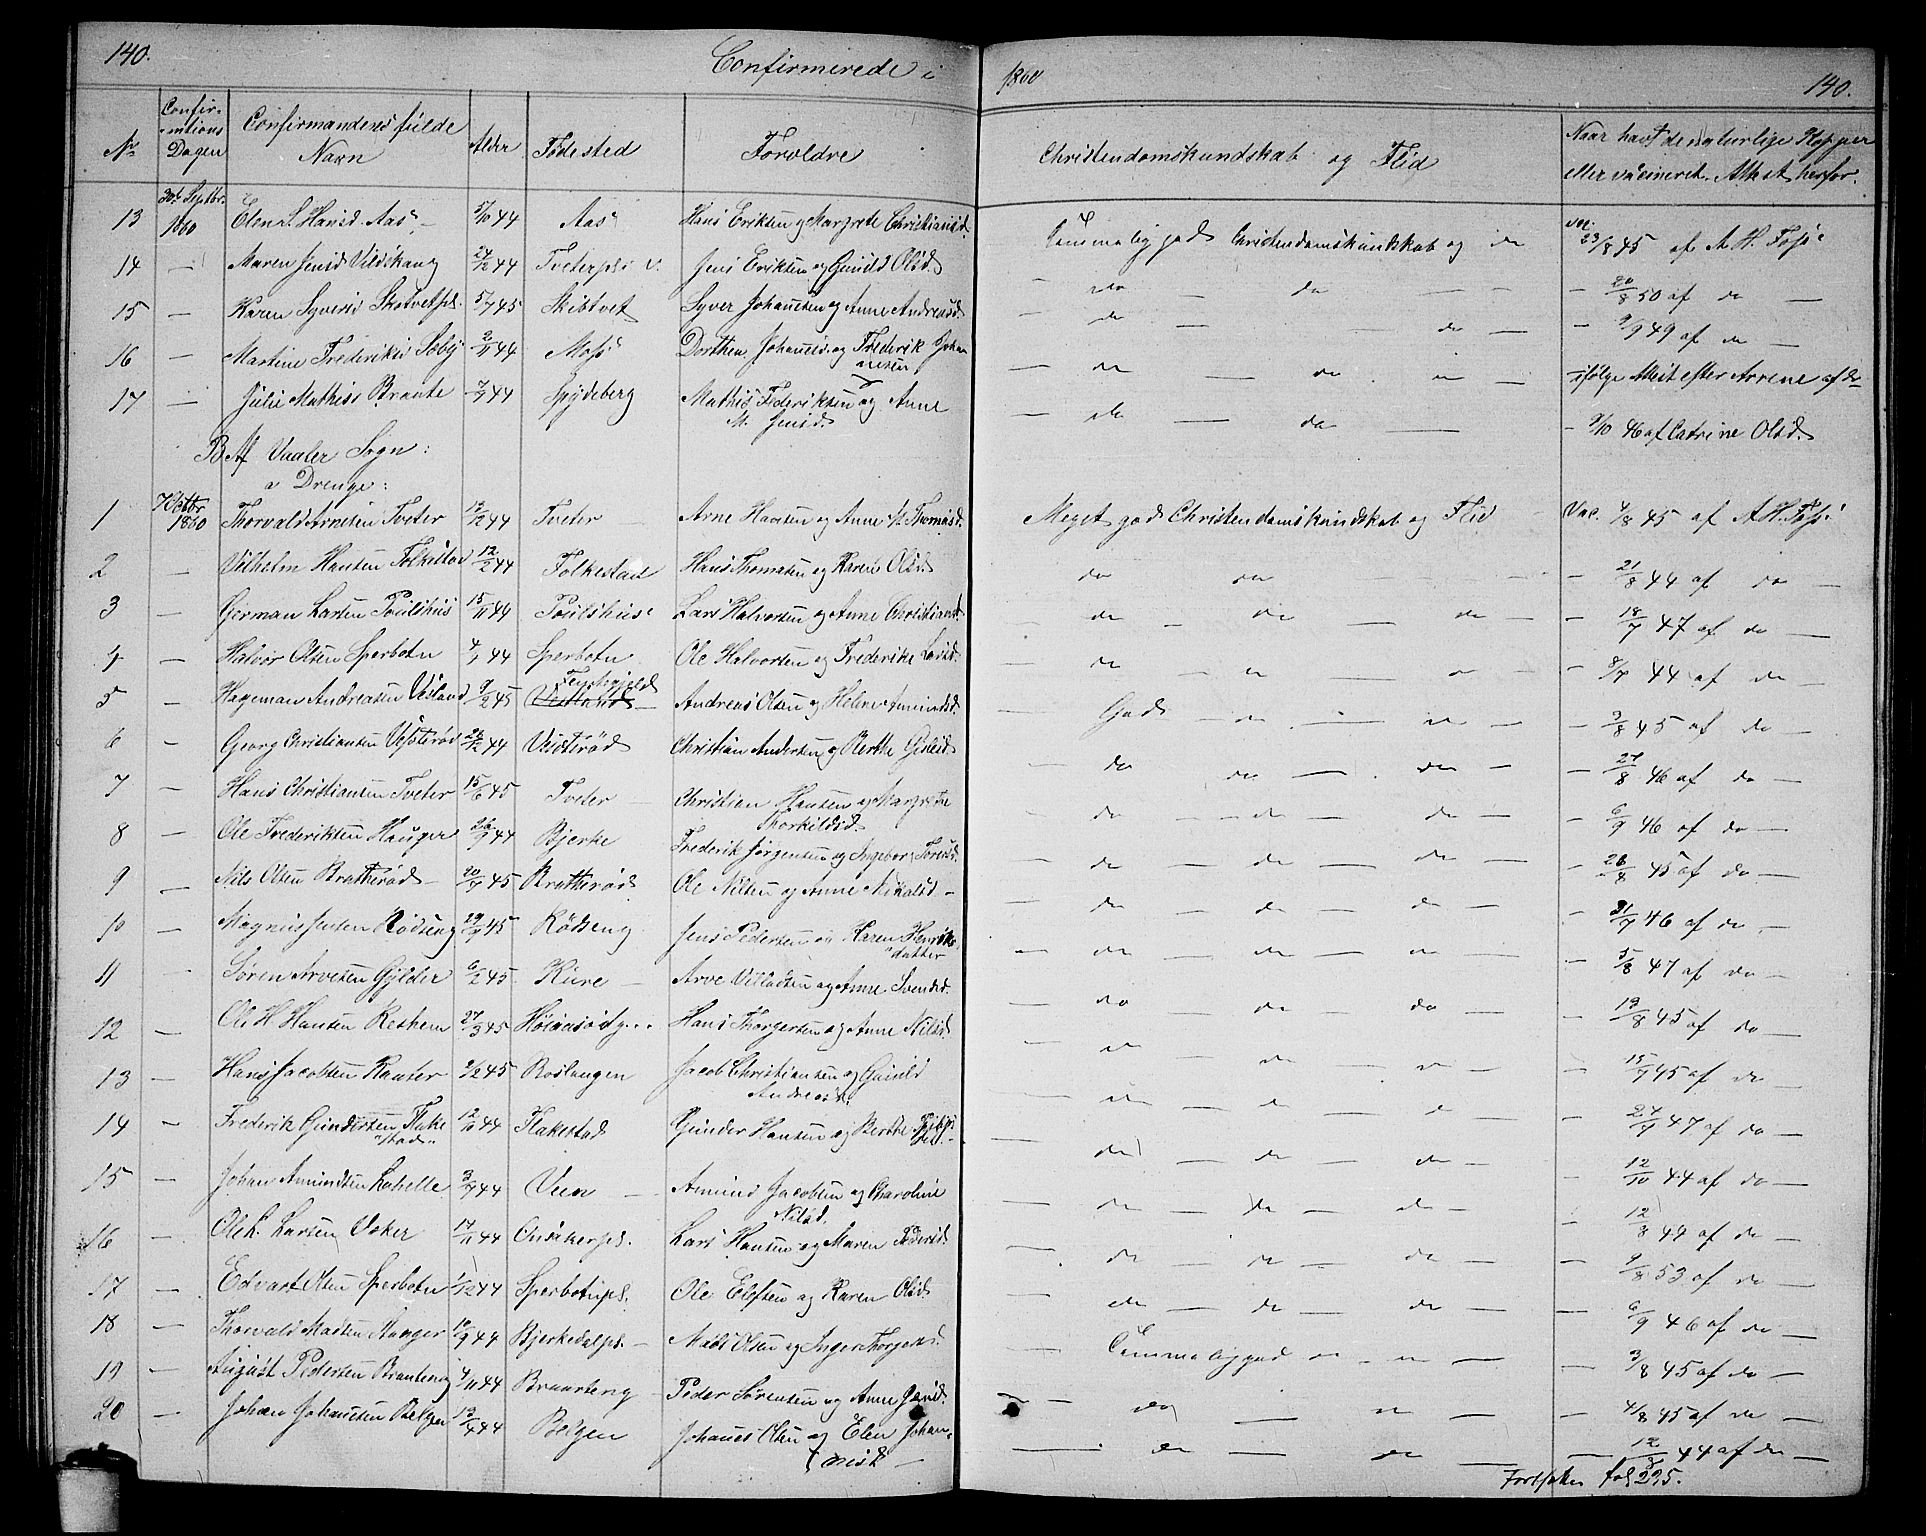 140. Confirmerede i 1860 140.
No Confirmations Dagen Confirmandens fulde Navn Alder Fødested Forældre Christendomskundskab og Flid Naar havt de naturlige Kopper eller vacineret. Attest herfor.
13 30te Septbr. 1860 Elen S. Hansd. Aas 5/10 44 Aas Hans Eriksen og Margrete Christiansd. Temmelig god Christendomskundskab og do vac. 23/8 45 af A. H. Foss
14 — Maren Jensd Vildskaug 27/2 44 Tveterpls Jens Eriksen og Gunild Olsd. — do — do — — 20/8 50 af do —
15 — Karen Syversd Skotvetpl. 5/7 45 Skibtvet Syver Johansen og Anne Andreasd — do — do — — 9/9 49 af do —
16 — Martine Frederiksd Soby 2/11 44 Moss Dorthea Johansd. og Frederik Johannesen — do — do — ifølge Attest efter Arrene af do—
17 — Julie Mathisd Braate 7/7 44 Spydeberg Mathis Frederiksen og Anne M. Jensd. — do — do — — 9/10 46 af Catrine Olsd.
B Af Vaaler Sogn:
a Drenge:
1 7 Octbr 1860 Thorvald Arnesen Tveter 12/12 44 Tveter Arne Hansen og Anne M. Thomasd. Meget god Christendomskundskab og Flid Vac. 4/8 45 af A. H. Foss
2 — Vilhelm Hansen Folkestad 12/2 44 Folkestad Hans Thomasen og Karen Olsd. do do — 21/8 44 af do —
3 — German Larsen Poulshus 15/11 44 Poulshus Lars Halvorsen og Anne Christiansd. do — do — do — — 18/7 47 af do —
4 — Halvor Olsen Sperbotn 4/1 44 Sperbotn Ole Halvorsen og Frederike Larsd. — do — — 8/7 44 af do —
5 — Hageman Andreasen Vesland 9/2 45 Vestland Andreas Olsen og Helene Amundsd. — God — do — — 3/8 45 af do —
6 — Georg Christiansen Vesterød 28/12 44 Vesterød Christian Andersen og Berthe — do do — do — — 27/8 46 af do —
7 — Hans Christiansen Tveter 15/6 45 Tveter — Christian Hansen og Margrethe Thorkildsd. — do — do — do — — 6/9 46 af do —
8 — Ole Frederiksen Hauger 26/9 44 Bjerke Frederik Jørgensen og Ingeborg — do — do — do — — 28/8 45 af do —
9 — Nils Olsen Bratherød — 20/7 45 Bratherød Ole Nilsen og Anne — do — do — do — — 31/7 46 af do —
10 — Magnus Jensen Rødseng 29/9 45 Rødseng Jens Pedersen og Karen Henriksdatter — do — do — do — — 5/8 47 af do —
11 — Søren Arvesen Gylder 6/2 45 Kure — Arve Villadsen og Anne Svensd. — do — do — do — — 19/8 45 af do —
12 — Ole H. Hansen Reshem 27/3 45 Hans Thorgersen og Anne Nilsd. — do — do — do — — 15/7 45 af do —
13 — Hans Jacobsen 9/2 45 Roslangen Jacob Christiansen og Gunild Andreasd. — do — do — do — — 27/9 47 af do —
14 — Frederik Gundersen Flakestad 12/10 44 Flakestad Gunder Hansen og Berthe — do — do — do — — 12/10 44 af do —
15 — Johan Amundsen Lahelle 3/7 44 Veen — Amund Jacobsen og Caroline Nilsd. — do — do — do — — 12/8 49 af do —
16 — Ole L. Larsen Osker 17/11 44 Lars Hansen og Maren Pedersd. — do — do — do — — 9/8 53 af do —
17 — Edvart Olsen Sperbotn 1/12 44 Sperbotnpl. Ole Elefsen og Karen Olsd. — do — do — do — — 6/9 46 af do —
18 — Thorvald Madsen Hauger 10/9 44 Bjerkedalpl. — Mads Olsen og Inger Thorgersd. — Temmelig god — — 3/8 45 af do —
19 — August Pedersen Brauteng 4/11 44 Braarteng — Peder Sørensen og Anne Jensd. — do — — 4/8 45 af do —
20 — Johan Johansen Bølgen 19/4 44 Bølgen Johanes Olsen og Elen Johannesd. — — do — do — — 12/8 44 af do —
Fortsættes fol 295.